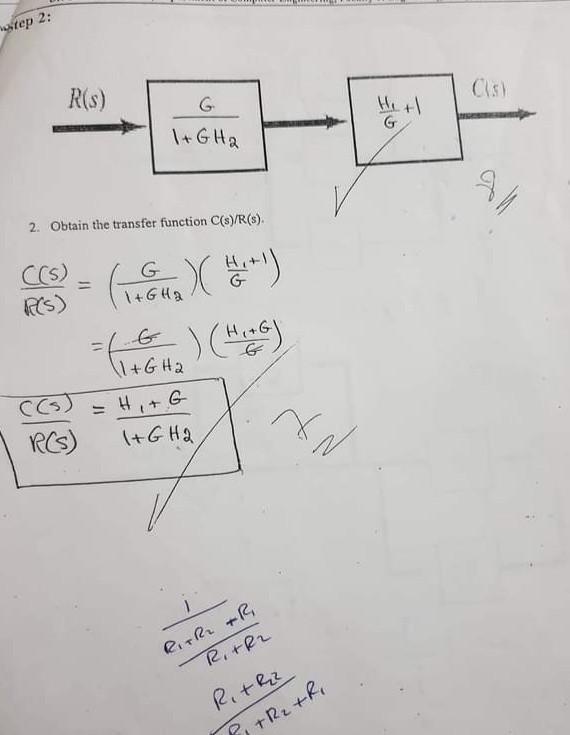 step 2:
R(s)
G
1+GH2
H1/G +1
C(s)
2. Obtain the transfer function C(s)/R(s).
C(s)/R(s) = (G/(1+GH2))(H1/G +1)
= (G/(1+GH2))((H1+G)/G)
C(s)/R(s) = (H1+G)/(1+GH2)
1
R1+R2 +R1
R1+R2
R1+R2
R1+R2+R1